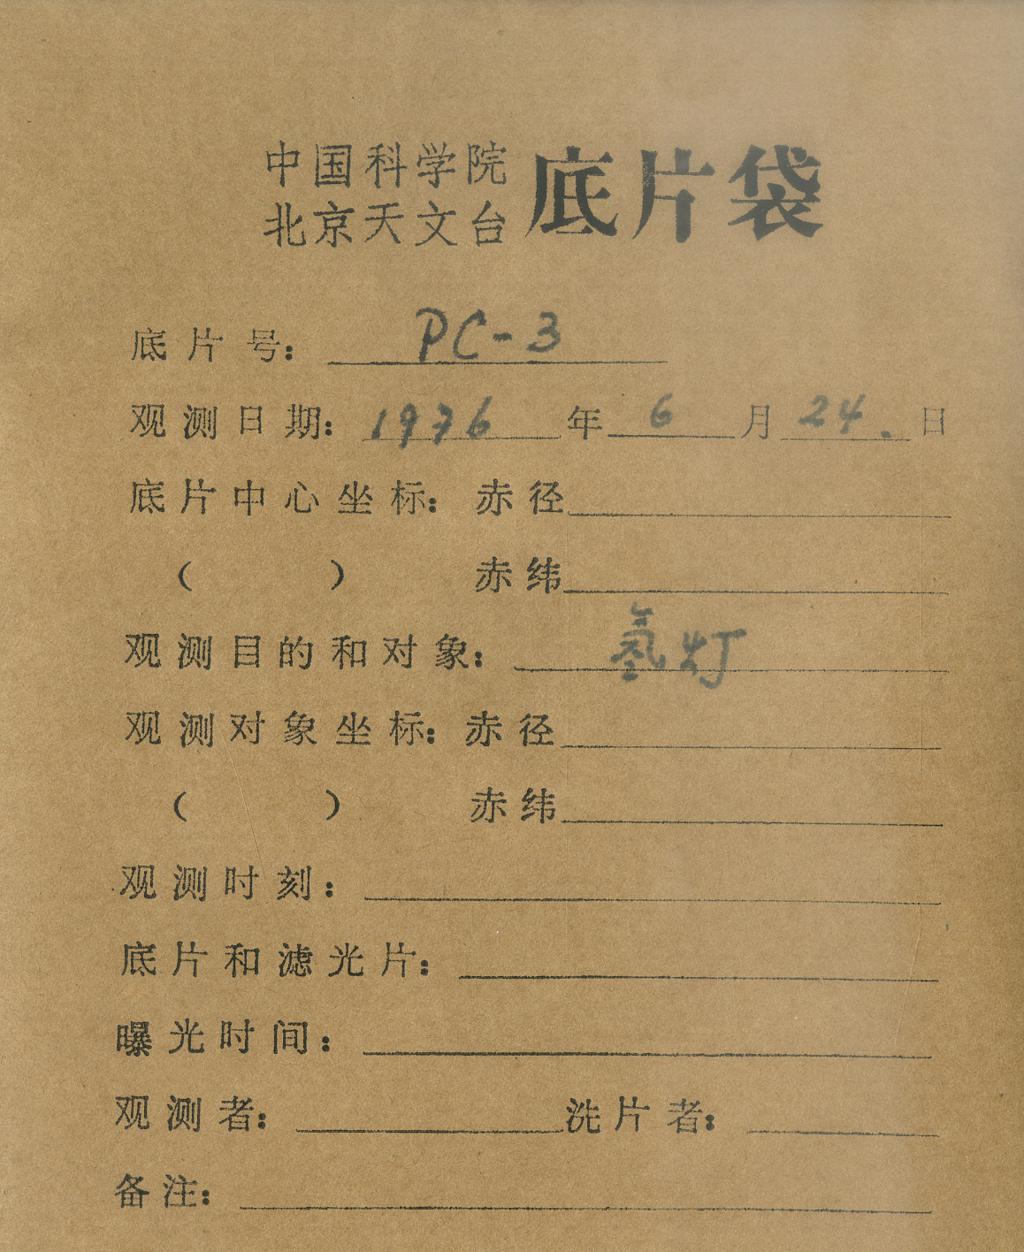 中国科学院
北京天文台
底片袋
底片号：PC-3
观测日期：1976年6月24.日
底片中心坐标：赤径
（ ） 赤纬
观测目的和对象：氢灯
观测对象坐标：赤径
（ ） 赤纬
观测时刻：
底片和滤光片：
曝光时间：
观测者： 洗片者：
备注：